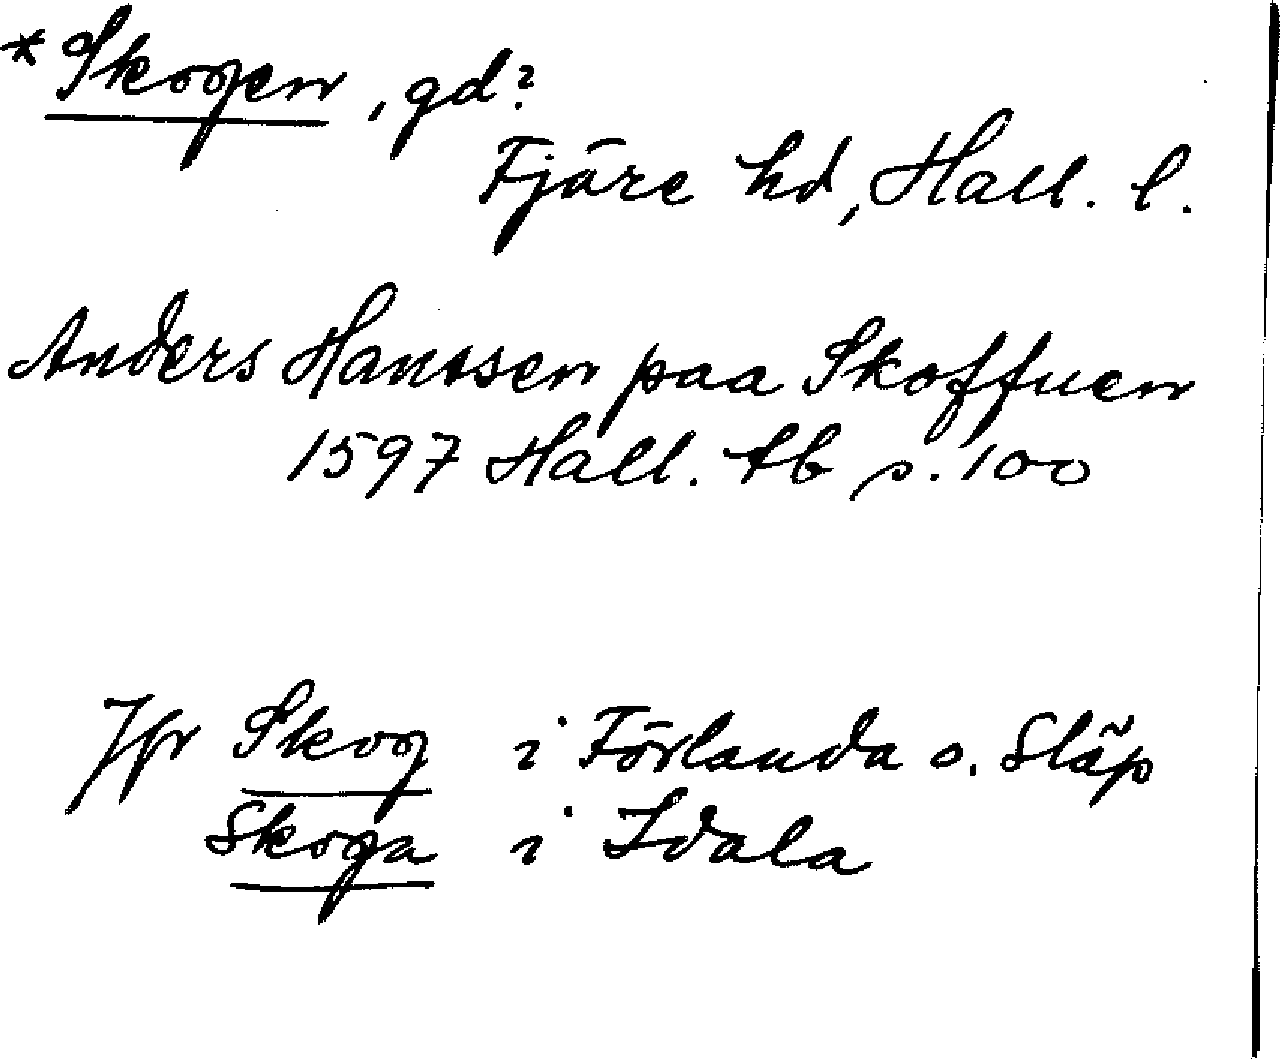 *Skogen, gd?
Fjäre hd, Hall. l.
Anders Hanssen paa Skoffuen
1597 Hall. tb s. 100
Jfr Skog i Förlanda o. Släp
Skoga i Idala